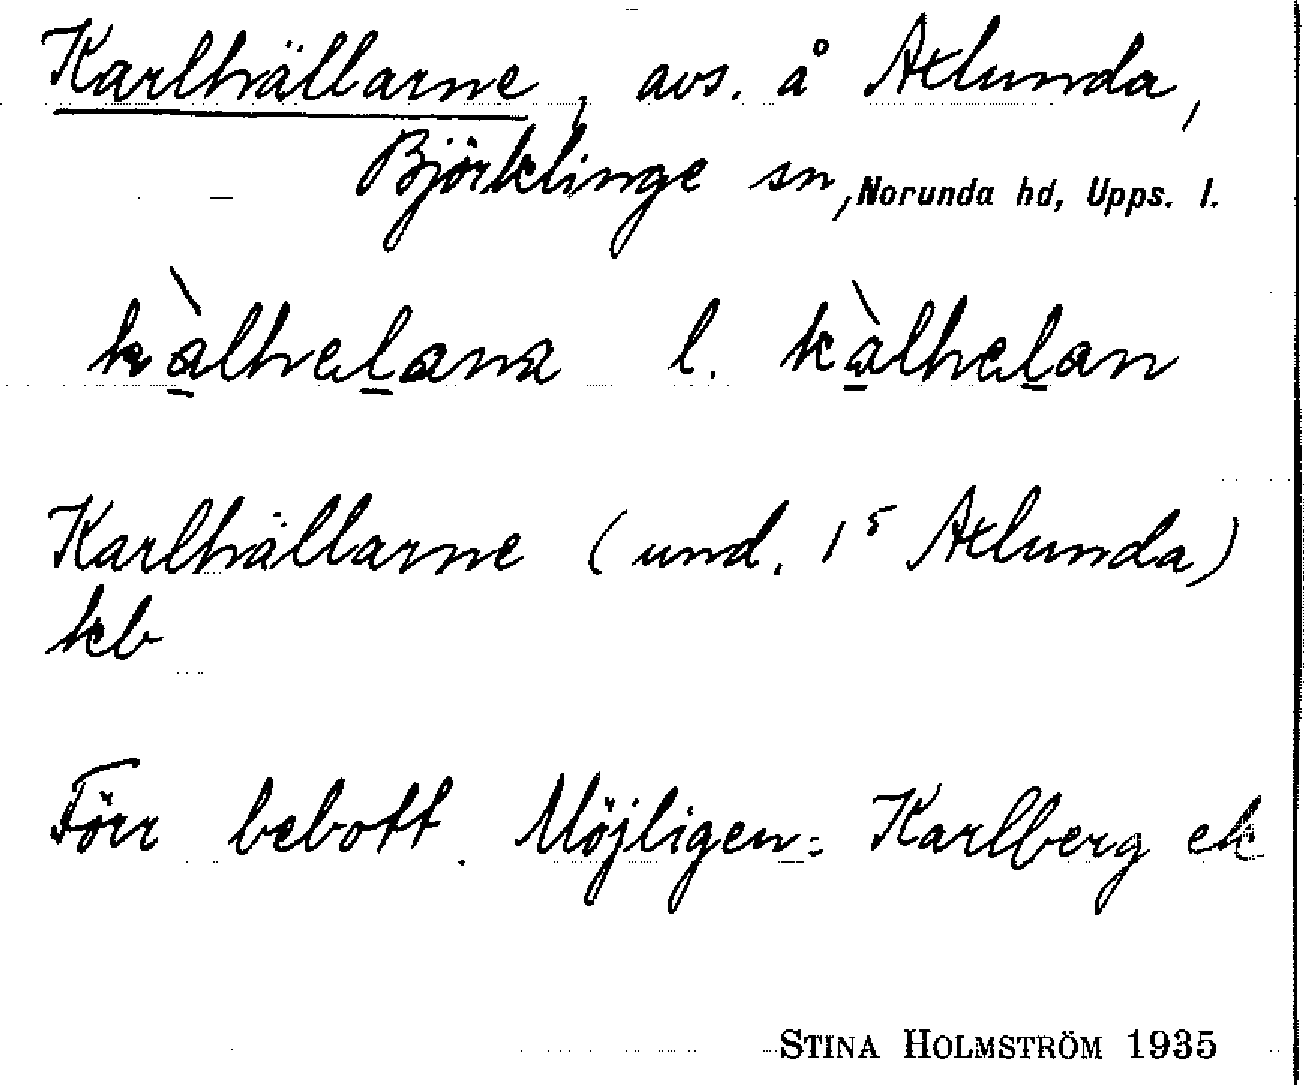 Karlhällarne, avs. å Axlunda,
Björklinge sn, Norunda hd, Upps. l.
kàlhælana l. kàlhælan
Karlhällarne (und. 1⁵ Axlunda)
kb
Förr bebott. Möjligen = Karlberg ek
STINA HOLMSTRÖM 1935